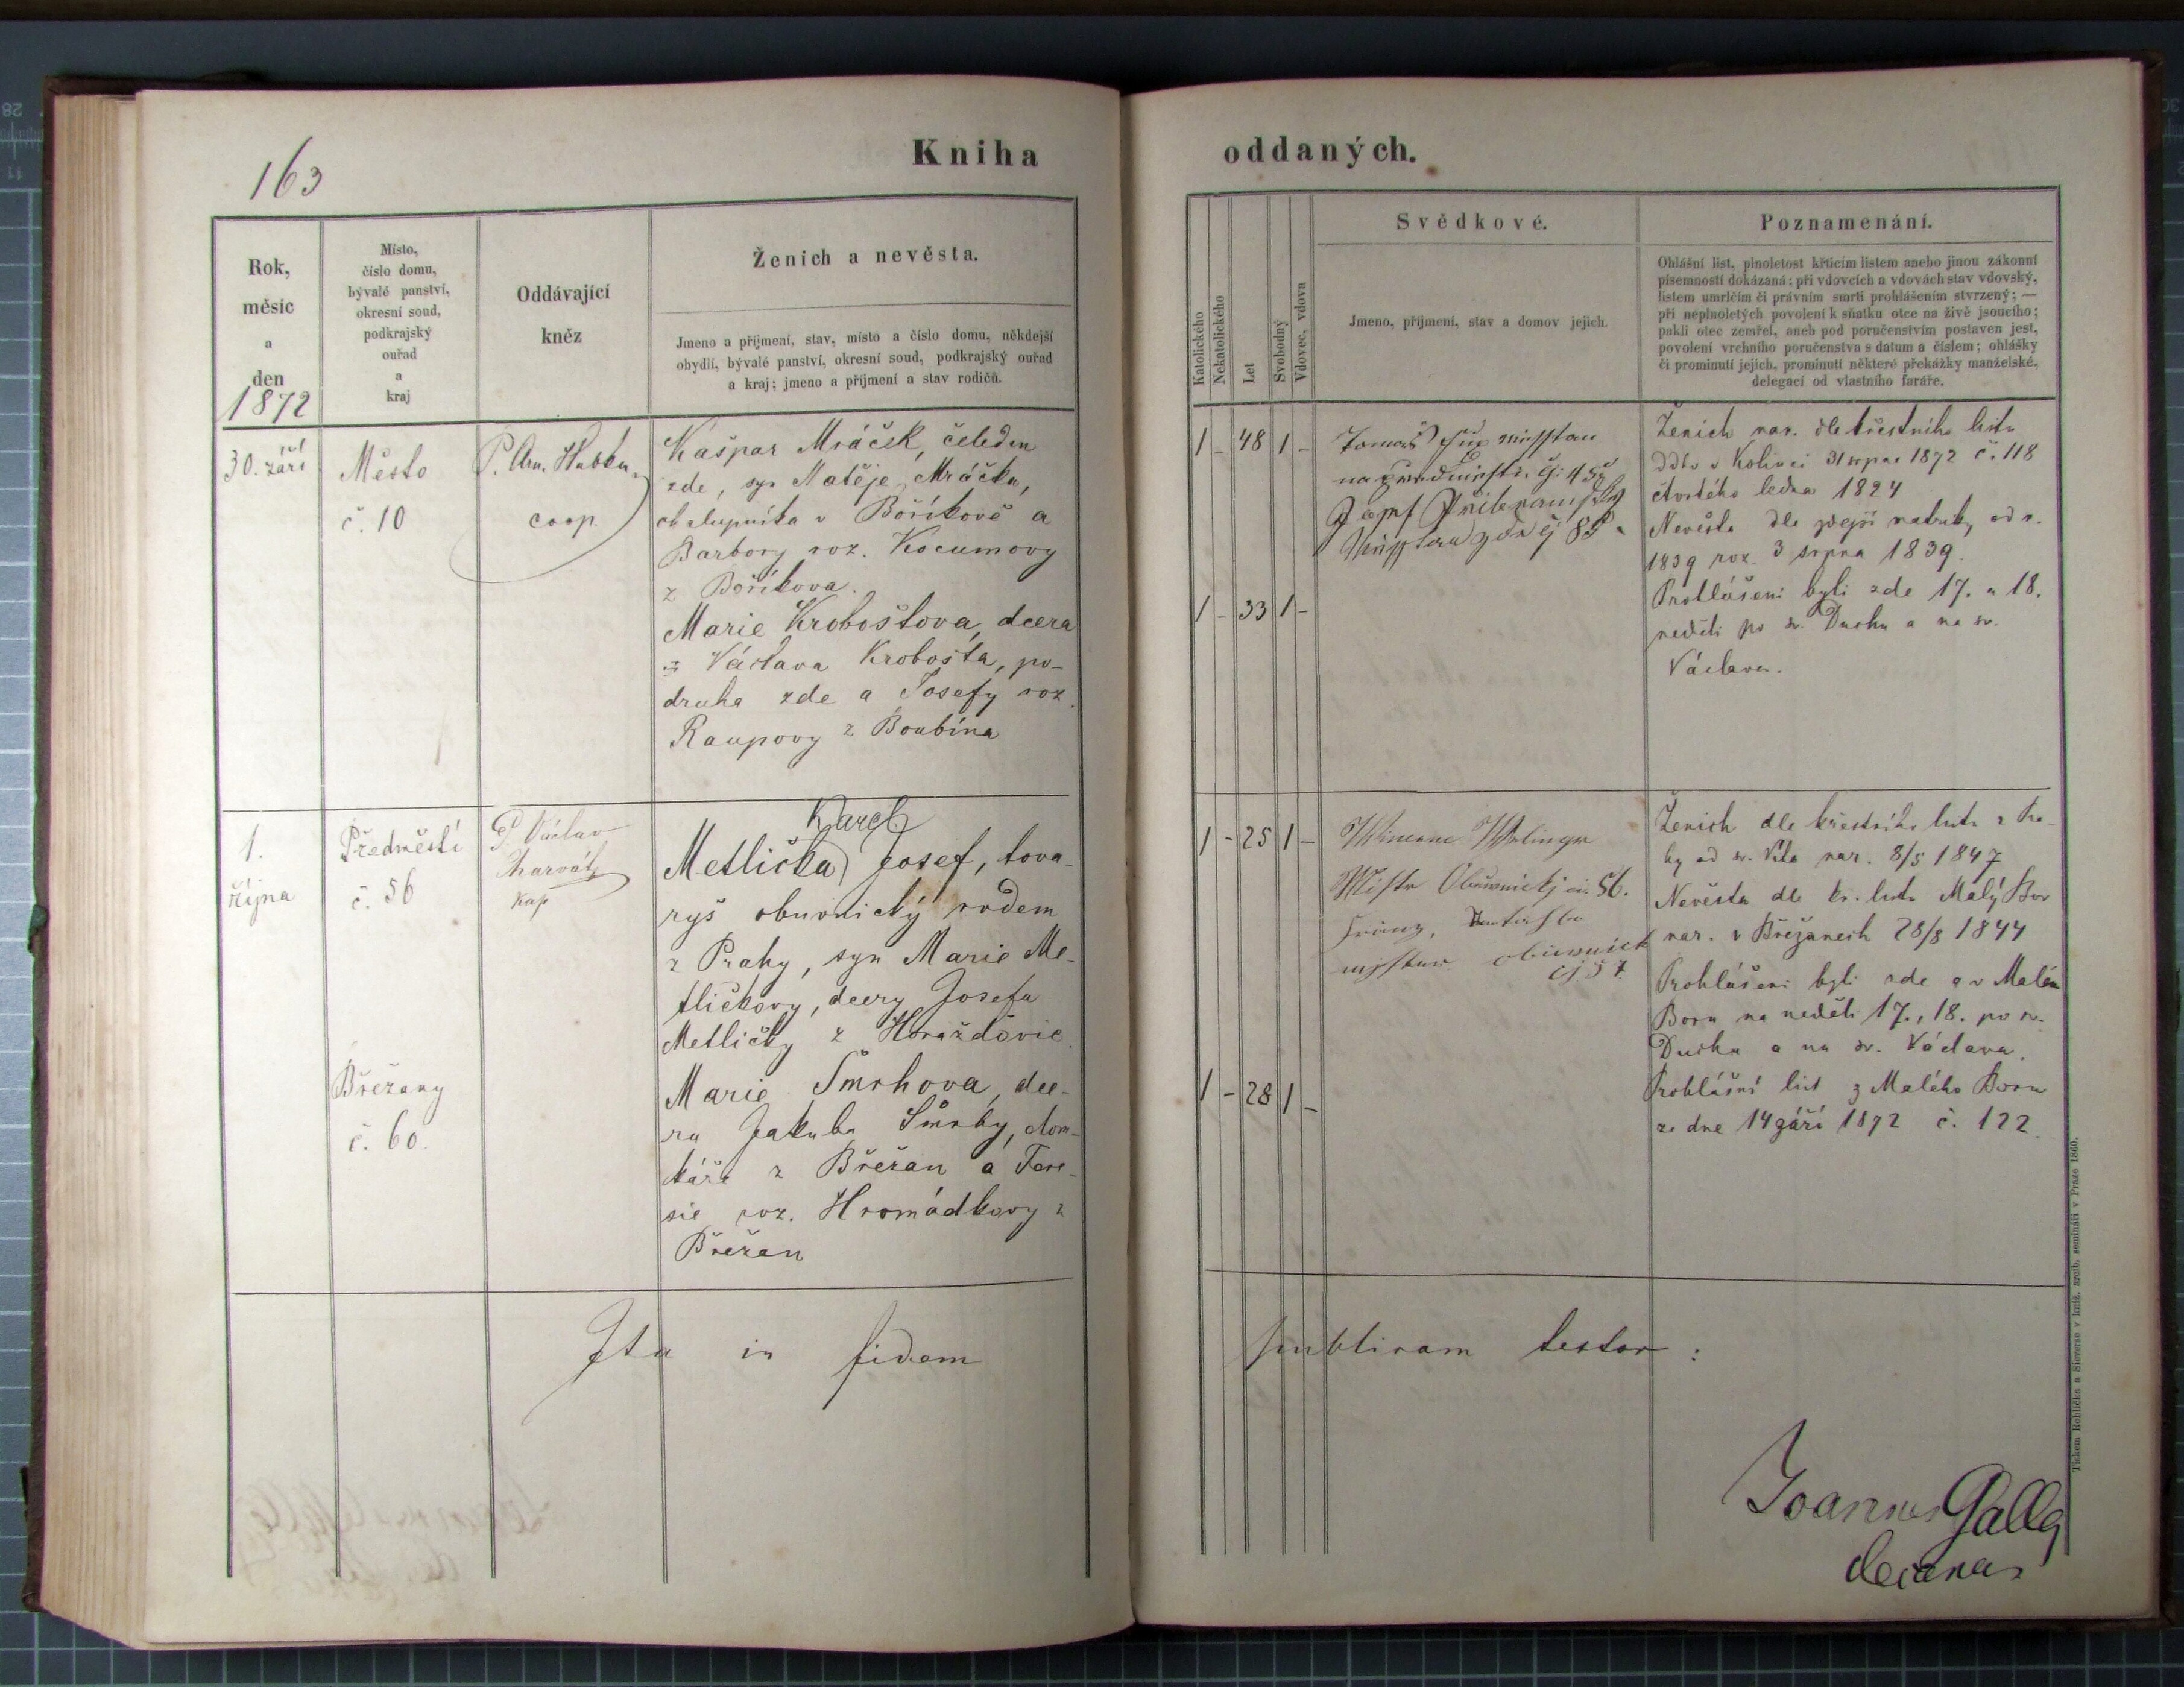 163
Kniha
oddaných.
Rok,
měsíc
a
den
1872
Místo,
číslo domu,
bývalé panství,
okresní soud,
podkrajský
ouřad
a
kraj
Oddávající
kněz
Ženich a nevěsta.
Jmeno a příjmení, stav, místo a číslo domu, někdejší
obydlí, bývalé panství, okresní soud, podkrajský ouřad
a kraj; jmeno a příjmení a stav rodičů.
Katolického
Nekatolického
Let
Svobodný
Vdovec, vdova
Svědkové.
Jmeno, příjmení, stav a domov jejich.
Poznamenání.
Ohlášní list, plnoletost křticím listem anebo jinou zákonní
písemností dokázaná; při vdovcích a vdovách stav vdovský,
listem umrlčím či právním smrti prohlášením stvrzený; —
při neplnoletých povolení k sňatku otce na živě jsoucího;
pakli otec zemřel, aneb pod poručenstvím postaven jest,
povolení vrchního poručenstva s datum a číslem; ohlášky
či prominutí jejich, prominutí některé překážky manželské,
delegací od vlastního faráře.
30. září
Město
č. 10
P. Hubka
coop.
Kašpar Mráček, čeledín
zde, syn Matěje Mráčka,
chalupníka v Boříkově a
Barbory roz. Kocumovy
z Boříkova.
Marie Kroboštova, dcera
Václava Krobošta, po-
druha zde a Josefy roz.
Raupovy z Boubína
1 - 48 1 -
1 - 33 1 -
Tomaš
Josef
Ženich nar. dle křestního listu
ddto v Kolinci 31 srpna 1872 č. 118
čtvrtého ledna 1824
Nevěsta dle zdejší matriky od r.
1839 roz. 3 srpna 1839.
Prohlášeni byli zde 17. a 18.
neděli po sv. Duchu a na sv.
Václava.
1.
října
Předměstí
č. 56
Břežany
č. 60.
P. Václav
Charvát
kap
Karel
Metlička Josef, tova-
ryš obuvnický rodem
z Prahy, syn Marie Me-
tličkovy, dcery Josefa
Metličky z Horažďovic.
Marie Šmrhova, dce-
ra Jakuba Šmrhy, dom-
káře z Břežan a Tere-
sie roz. Hromádkovy z
Břežan
1 - 25 1 -
1 - 28 1 -
Mistr Obuwnickj 56.
obuwnick
čj 57.
Ženich dle křestního listu z Pra-
hy od sv. Víta nar. 8/5 1847
Nevěsta dle kř. listu Malý Bor
nar. v Břežanech 28/8 1844
Prohlášeni byli zde a v Malém
Boru na neděli 17., 18. po sv.
Duchu a na sv. Václava.
Prohlášní list z Malého Boru
ze dne 14 září 1872 č. 122.
Ita in fidem
publicam testor:
Joannes Galla
decanus
Tiskem Rohlíčka a Sieverse v kníž. arcib. semináři v Praze 1860.